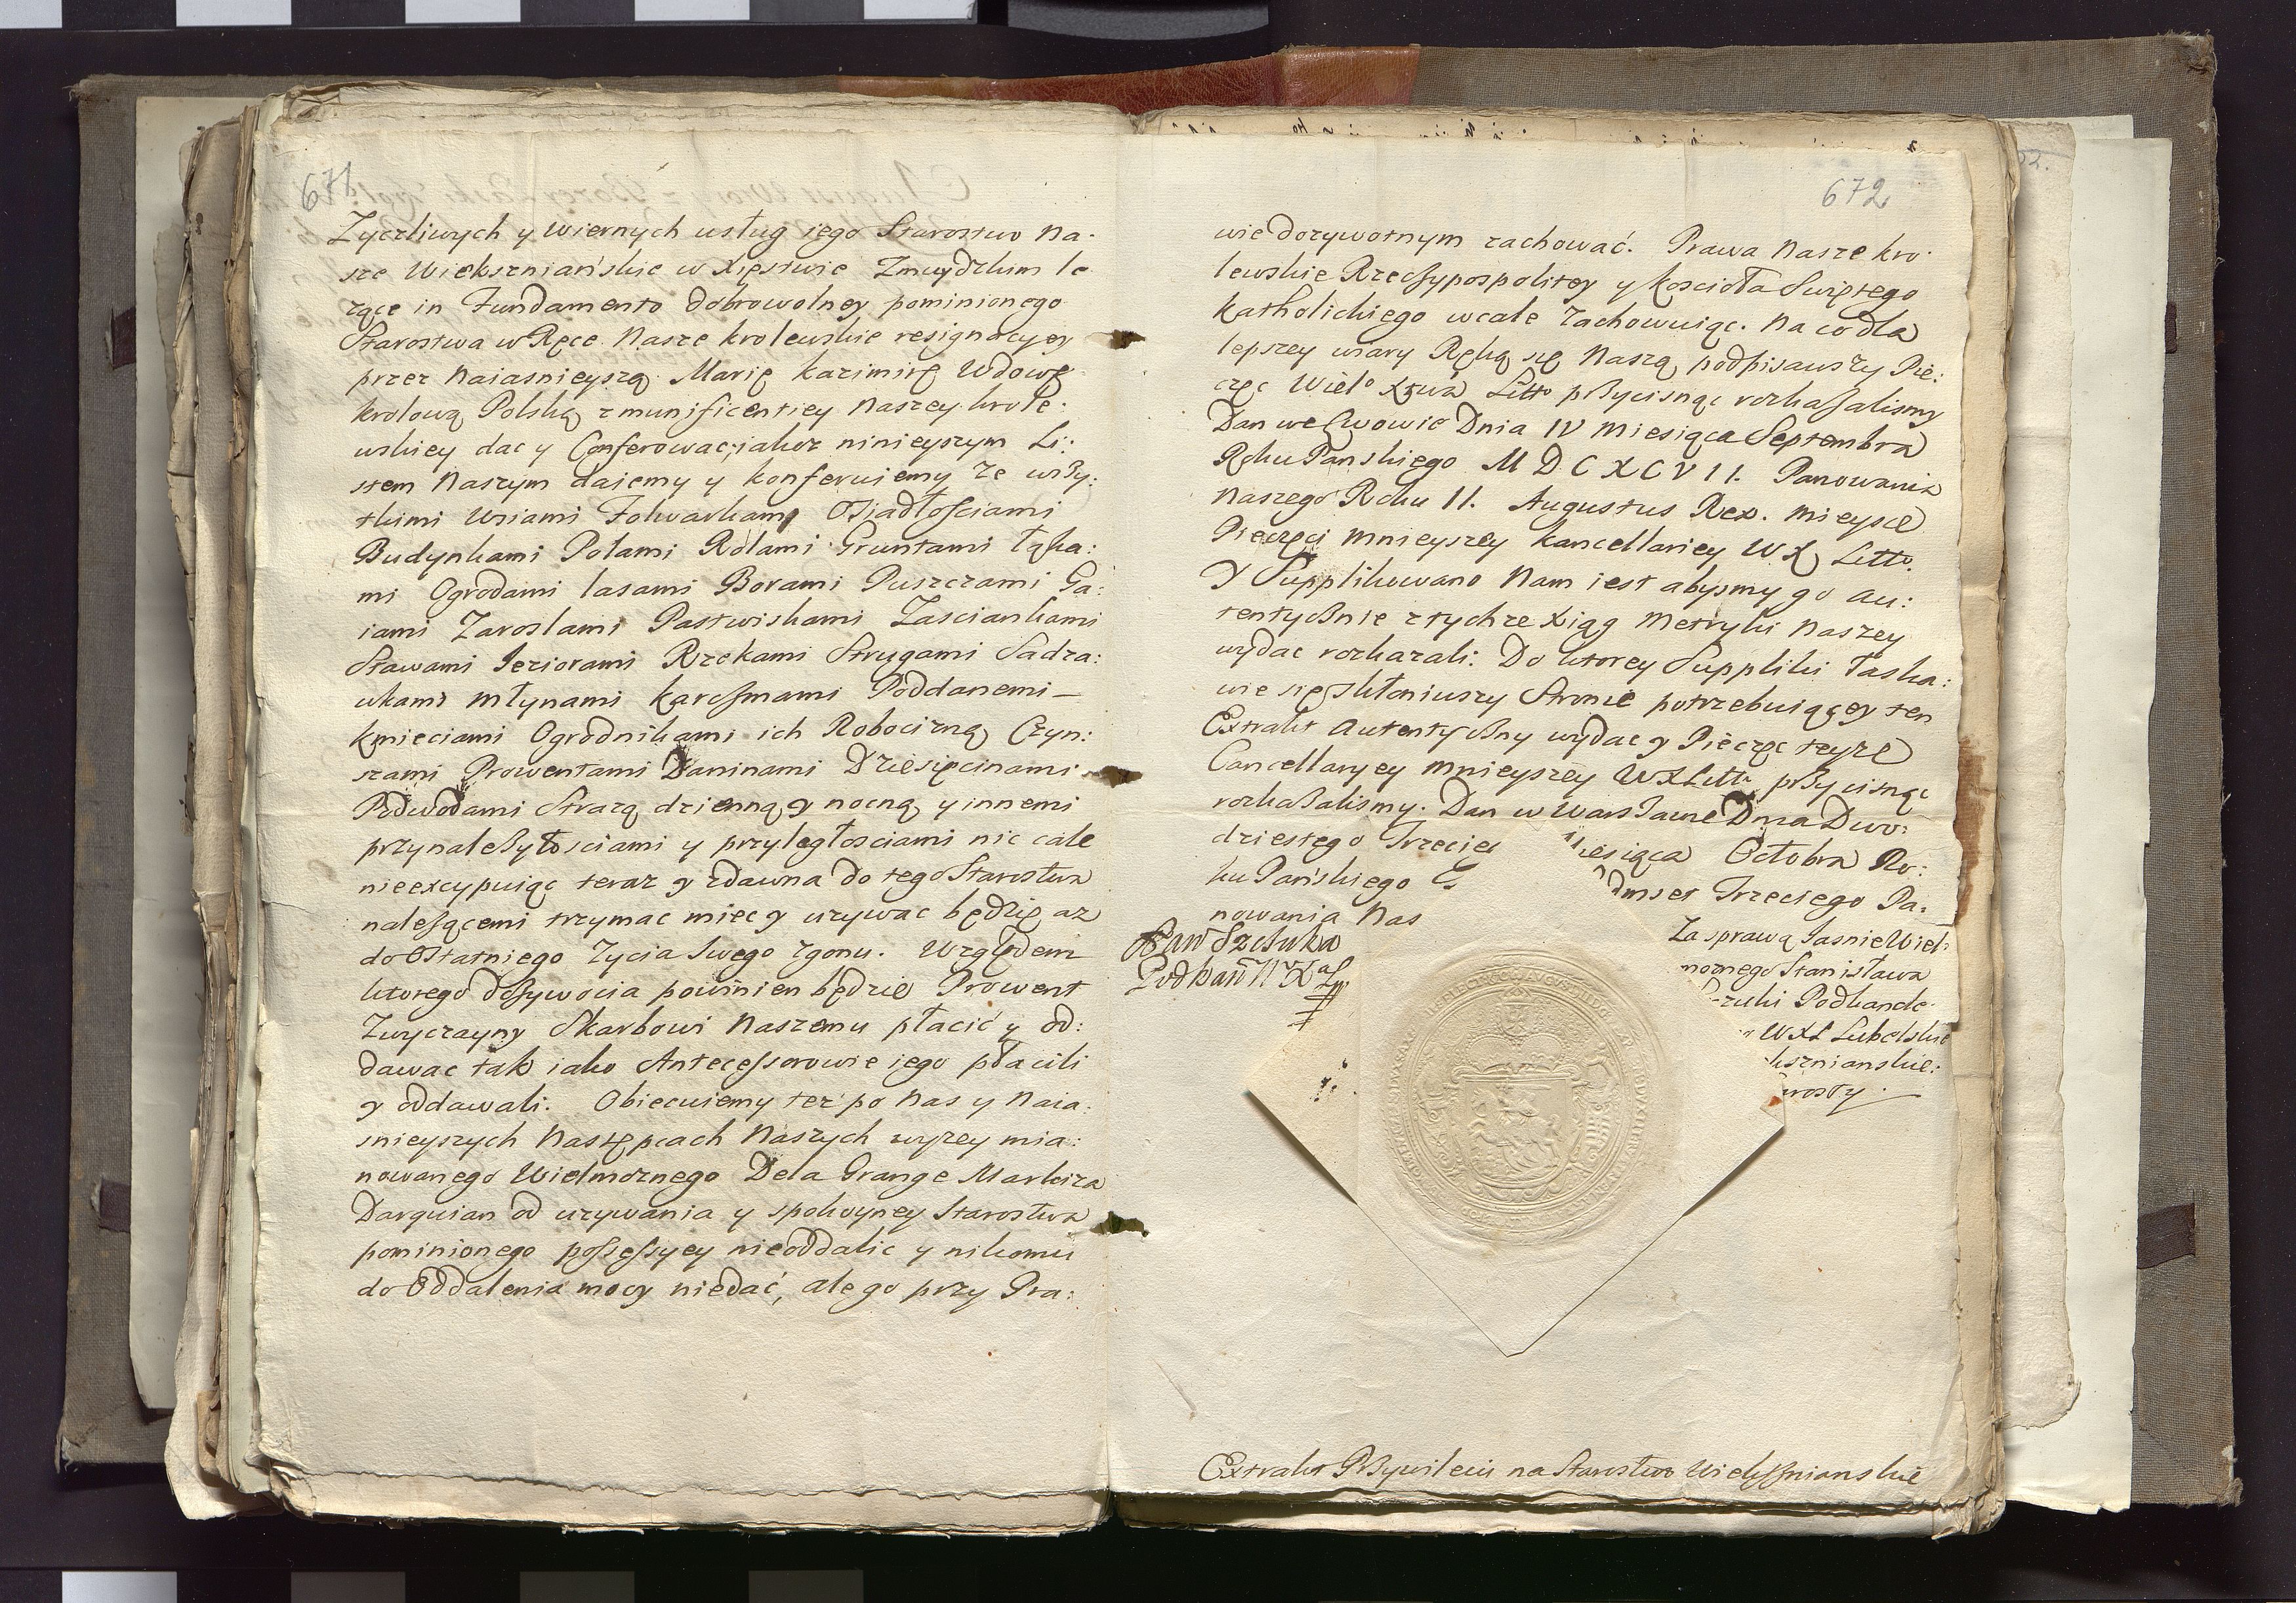 671
Zyczliwych y wiernych usług iego Starostwo Na-
sze Wiekszniańskie w Xięstwie Zmuydzkim le
żące in Fundamento dobrowolney pominionego
Starostwa w Ręce Nasze krolewskie resignacyey
przez Naiasnieyszą Marię Kazimirę Wdowę
krolową Polską z munificentiey Naszey krole:
wskiey dac y Conferowac, iakoz ninieyszym Li:
stem Naszym dajemy y konferujemy ze wszy:
tkimi Wsiami Folwarkami Osiadłosciami
Budynkami Polami Rolami Gruntami Łąka:
mi Ogrodami lasami Borami Puszczami Ga:
iami Zaroslami Pastwiskami Zasciankami
Stawami Ieziorami Rzekami Strugami Sadza:
wkami Młynami Karczmami Poddanemi —
Kmieciami Ogrodnikami ich Robocizną Czyn:
szami Prowentami Daninami Dziesięcinami
Podwodami Strażą dzienną y nocną y innemi
przynależytosciami y przyległosciami nic cale
nieexcypuiąc teraz y zdawna do tego Starostwa
należącemi trzymac miec y uzywac będzie az
do Ostatniego Zycia Swego zgonu. Względem
ktorego dożywocia powinien będzie Prowent
Zwyczayny Skarbowi Naszemu płacić y od:
dawac tak iako Antecessorowie iego płacili
y oddawali. Obiecuiemy tez po Nas y Naia:
snieyszych Następcach Naszych wyzey mia:
nowanego Wielmoznego Dela Grange Markiza
Darquian od uzywania y spokoyney Starostwa
pominionego possessyey nieoddalic y nikomu
do Oddalenia mocy niedać, ale go przy Pra:
672
wie dozywotnym zachować. Prawa Nasze kro-
lewskie Rzeczypospolitey y Koscioła Swiętego
Katholickiego wcale zachowuiąc. Na co dla
lepszey wiary Ręką się Naszą podpisawszy Pie:
częc Wielo Xstwa Litto przycisnąc rozkazalismy
Dan we Lwowie Dnia IV Miesiąca Septembra
Roku Panskiego M D C X C V I I. Panowania
Naszego Roku II. Augustus Rex. Mieysce
Pieczęci Mnieyszey Kancellariey W X Litto.
Y Supplikowano Nam iest abysmy go au:
tentycznie z tychze Xiąg Metryki Naszey
wydac rozkazali. Do ktorey Suppliki łaska:
wie się skłoniwszy Stronie potrzebuiącey ten
Extrakt Autentyczny wydac y Pieczęc teyze
Cancellaryey Mnieyszey WXLitt. przycisnąc
rozkazalismy. Dan w Warszawie Dnia Dwu:
dziestego Trzecieg iesiąca Octobra Ro:
ku Pańskiego dmset Trzeciego Pa.
nowania Nas
Za sprawą Jasnie Wiel:
moznego Stanisława
zuki Podkancle:
WXL Lubelskie
ksznianskie:
arosty.
Sczuka
Podkan
Extrakt Przywileiu na Starostwo Wiekszniańskie